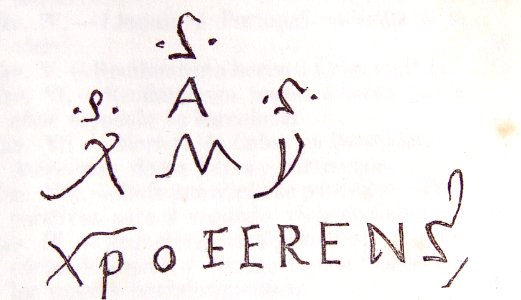 .S.
.S. A .S.
X M Y
XpoFERENS